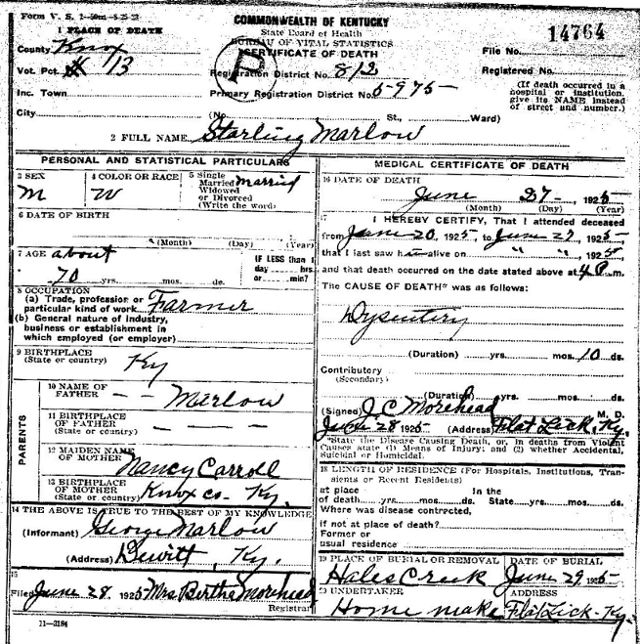 Form V. S. 1-50m-5-25-22
COMMONWEALTH OF KENTUCKY
State Board of Health
BUREAU OF VITAL STATISTICS
CERTIFICATE OF DEATH
14764
1 PLACE OF DEATH
County Knox
File No.
Vot. Pct. # 13
Registration District No. 812
Registered No.
Inc. Town
Primary Registration District No. 5-975-
(If death occurred in a hospital or institution, give its NAME instead of street and number.)
City
(No. St., Ward)
2 FULL NAME Starling Marlow
PERSONAL AND STATISTICAL PARTICULARS
3 SEX
M
4 COLOR OR RACE
W
5 Single
Married
Widowed
or Divorced
(Write the word)
Married
6 DATE OF BIRTH
(Month) (Day) (Year)
7 AGE about
70 yrs. mos. ds.
IF LESS than 1
day hrs.
or min.?
8 OCCUPATION
(a) Trade, profession or
particular kind of work Farmer
(b) General nature of industry,
business or establishment in
which employed (or employer)
9 BIRTHPLACE
(State or country) Ky
PARENTS
10 NAME OF
FATHER — — Marlow
11 BIRTHPLACE
OF FATHER
(State or country) — — — —
12 MAIDEN NAME
OF MOTHER Nancy Carroll
13 BIRTHPLACE
OF MOTHER
(State or country) Knox co. Ky.
14 THE ABOVE IS TRUE TO THE BEST OF MY KNOWLEDGE
(Informant) George Marlow
(Address) Dewitt, Ky.
15
Filed June 28, 1925 Mrs. Berthe Morehead
Registrar
11-3184
MEDICAL CERTIFICATE OF DEATH
16 DATE OF DEATH
June 27 - 1925
(Month) (Day) (Year)
17 I HEREBY CERTIFY, That I attended deceased
from June 20, 1925, to June 27, 1925
that I last saw h alive on " " 1925
and that death occurred on the date stated above at 4 P m.
The CAUSE OF DEATH* was as follows:
Dysentery
(Duration) yrs. mos. 10 ds.
Contributory
(Secondary)
(Duration) yrs. mos. ds.
(Signed) J. C. Morehead M. D.
June 28 1925 (Address) Flat Lick, Ky.
*State the Disease Causing Death, or, in deaths from Violent
Causes state (1) Means of Injury; and (2) whether Accidental,
Suicidal or Homicidal.
18 LENGTH OF RESIDENCE (For Hospitals, Institutions, Transients or Recent Residents)
at place In the
of death yrs. mos. ds. State yrs. mos. ds.
Where was disease contracted,
if not at place of death?
Former or
usual residence
19 PLACE OF BURIAL OR REMOVAL
Hales Creek
DATE OF BURIAL
June 29 1925
20 UNDERTAKER
Home make
ADDRESS
Flat Lick - Ky.